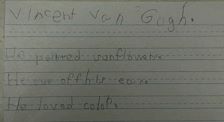 Vincent Van Gogh.
He painted sunflowers
He cut off his ear
He loved color.